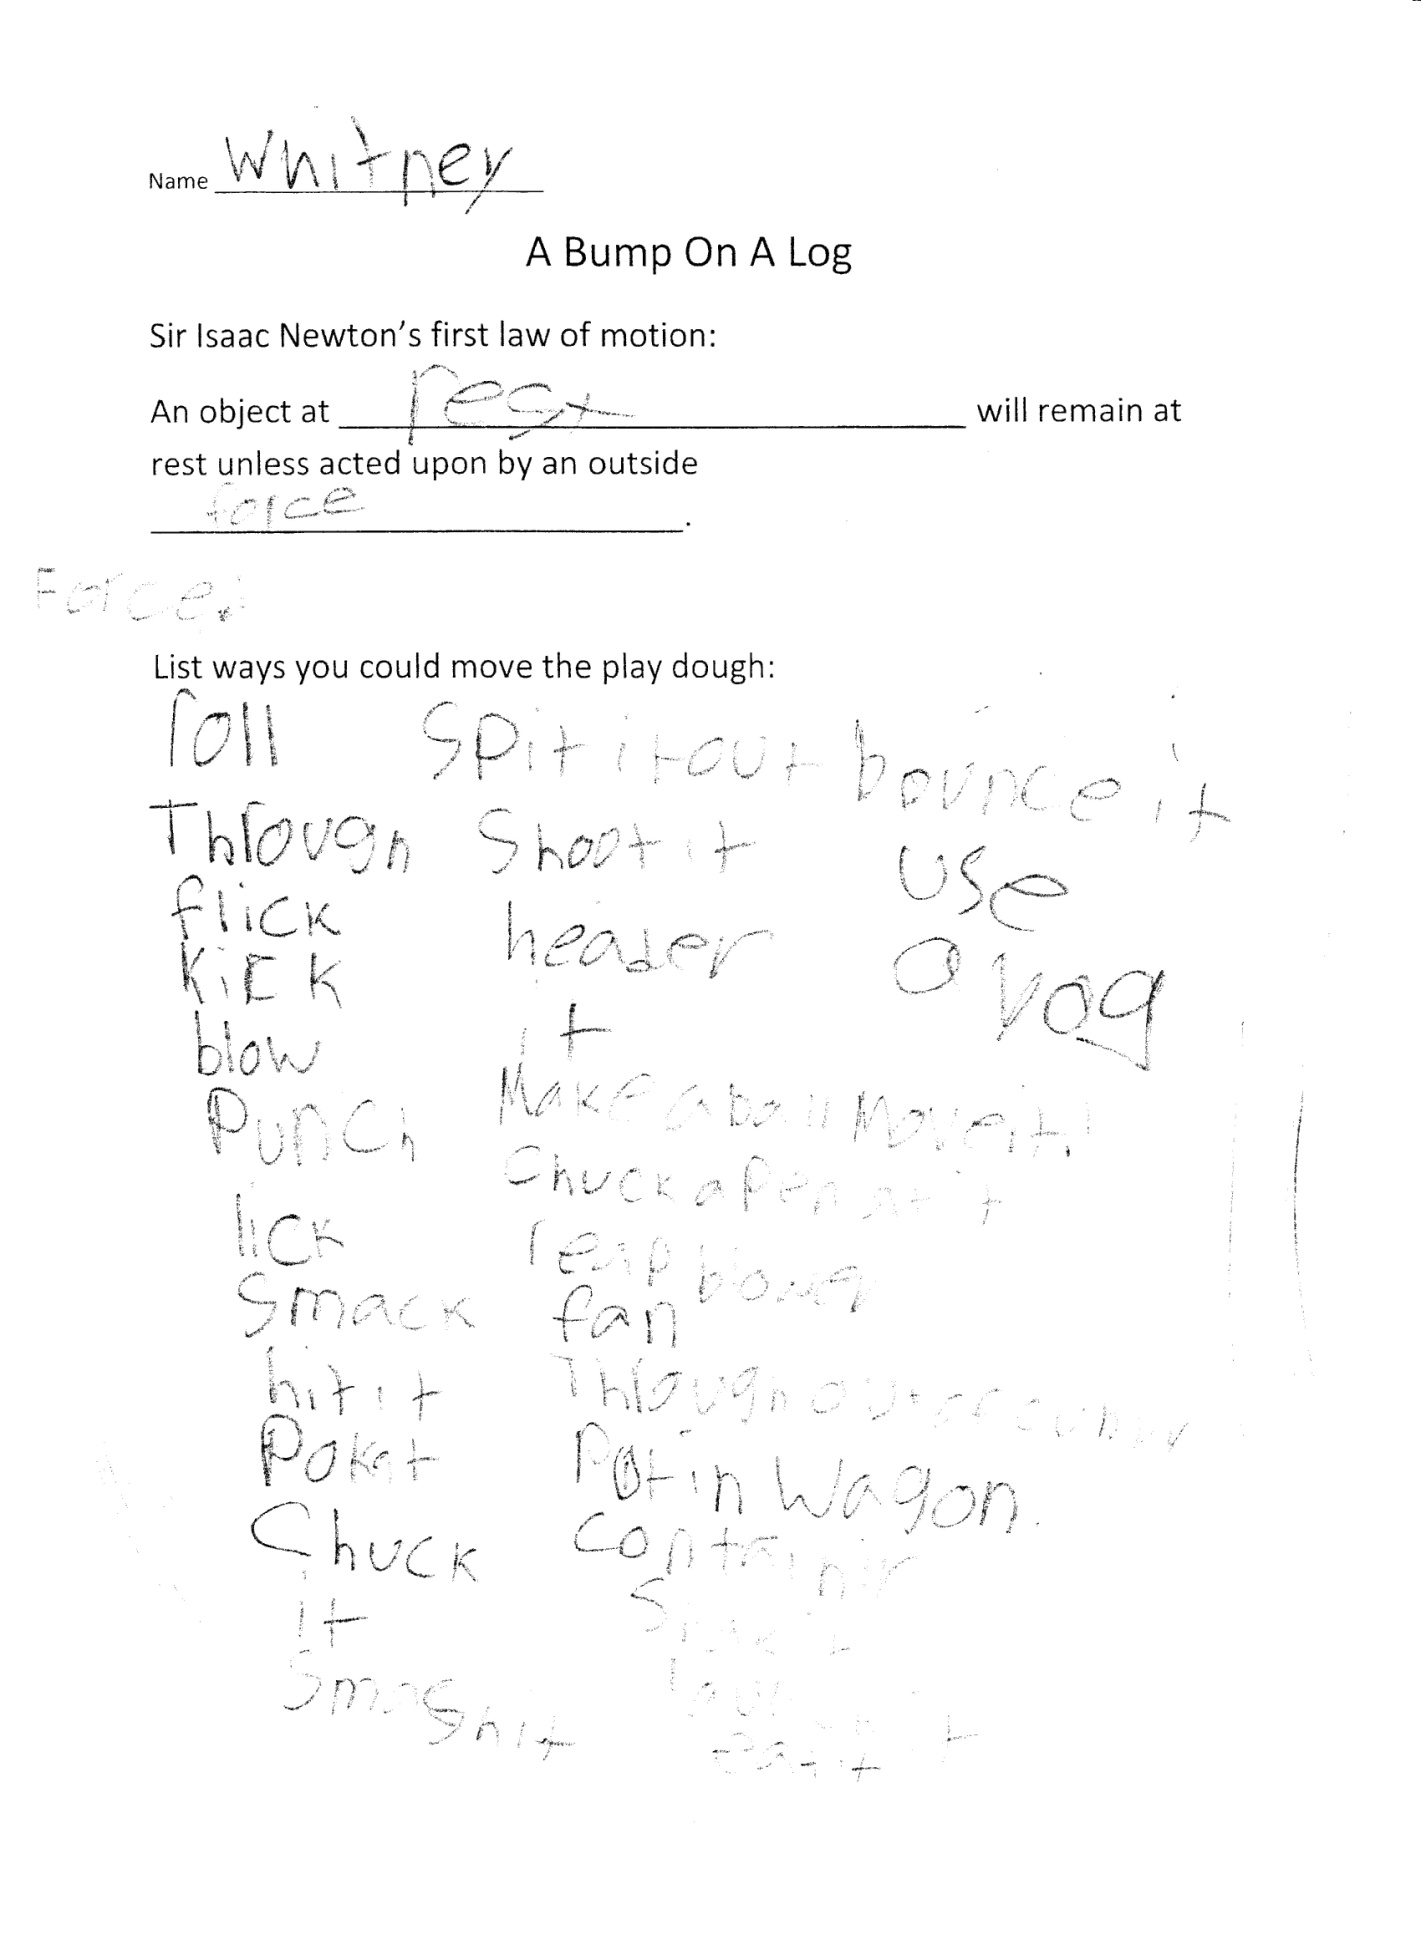 Name Whitney
A Bump On A Log
Sir Isaac Newton's first law of motion:
An object at rest will remain at
rest unless acted upon by an outside
force.
Force.
List ways you could move the play dough:
roll
Through
flick
kick
blow
Punch
lick
Smack
hit it
Poket
Chuck
it
Smash it
Spit it out
Shoot it
header
it
Make a ball Move it!
Chuck a Pen at it
leap blower
fan
Through out of
Pot in Wagon.
contain
eat it
bounce it
use
a